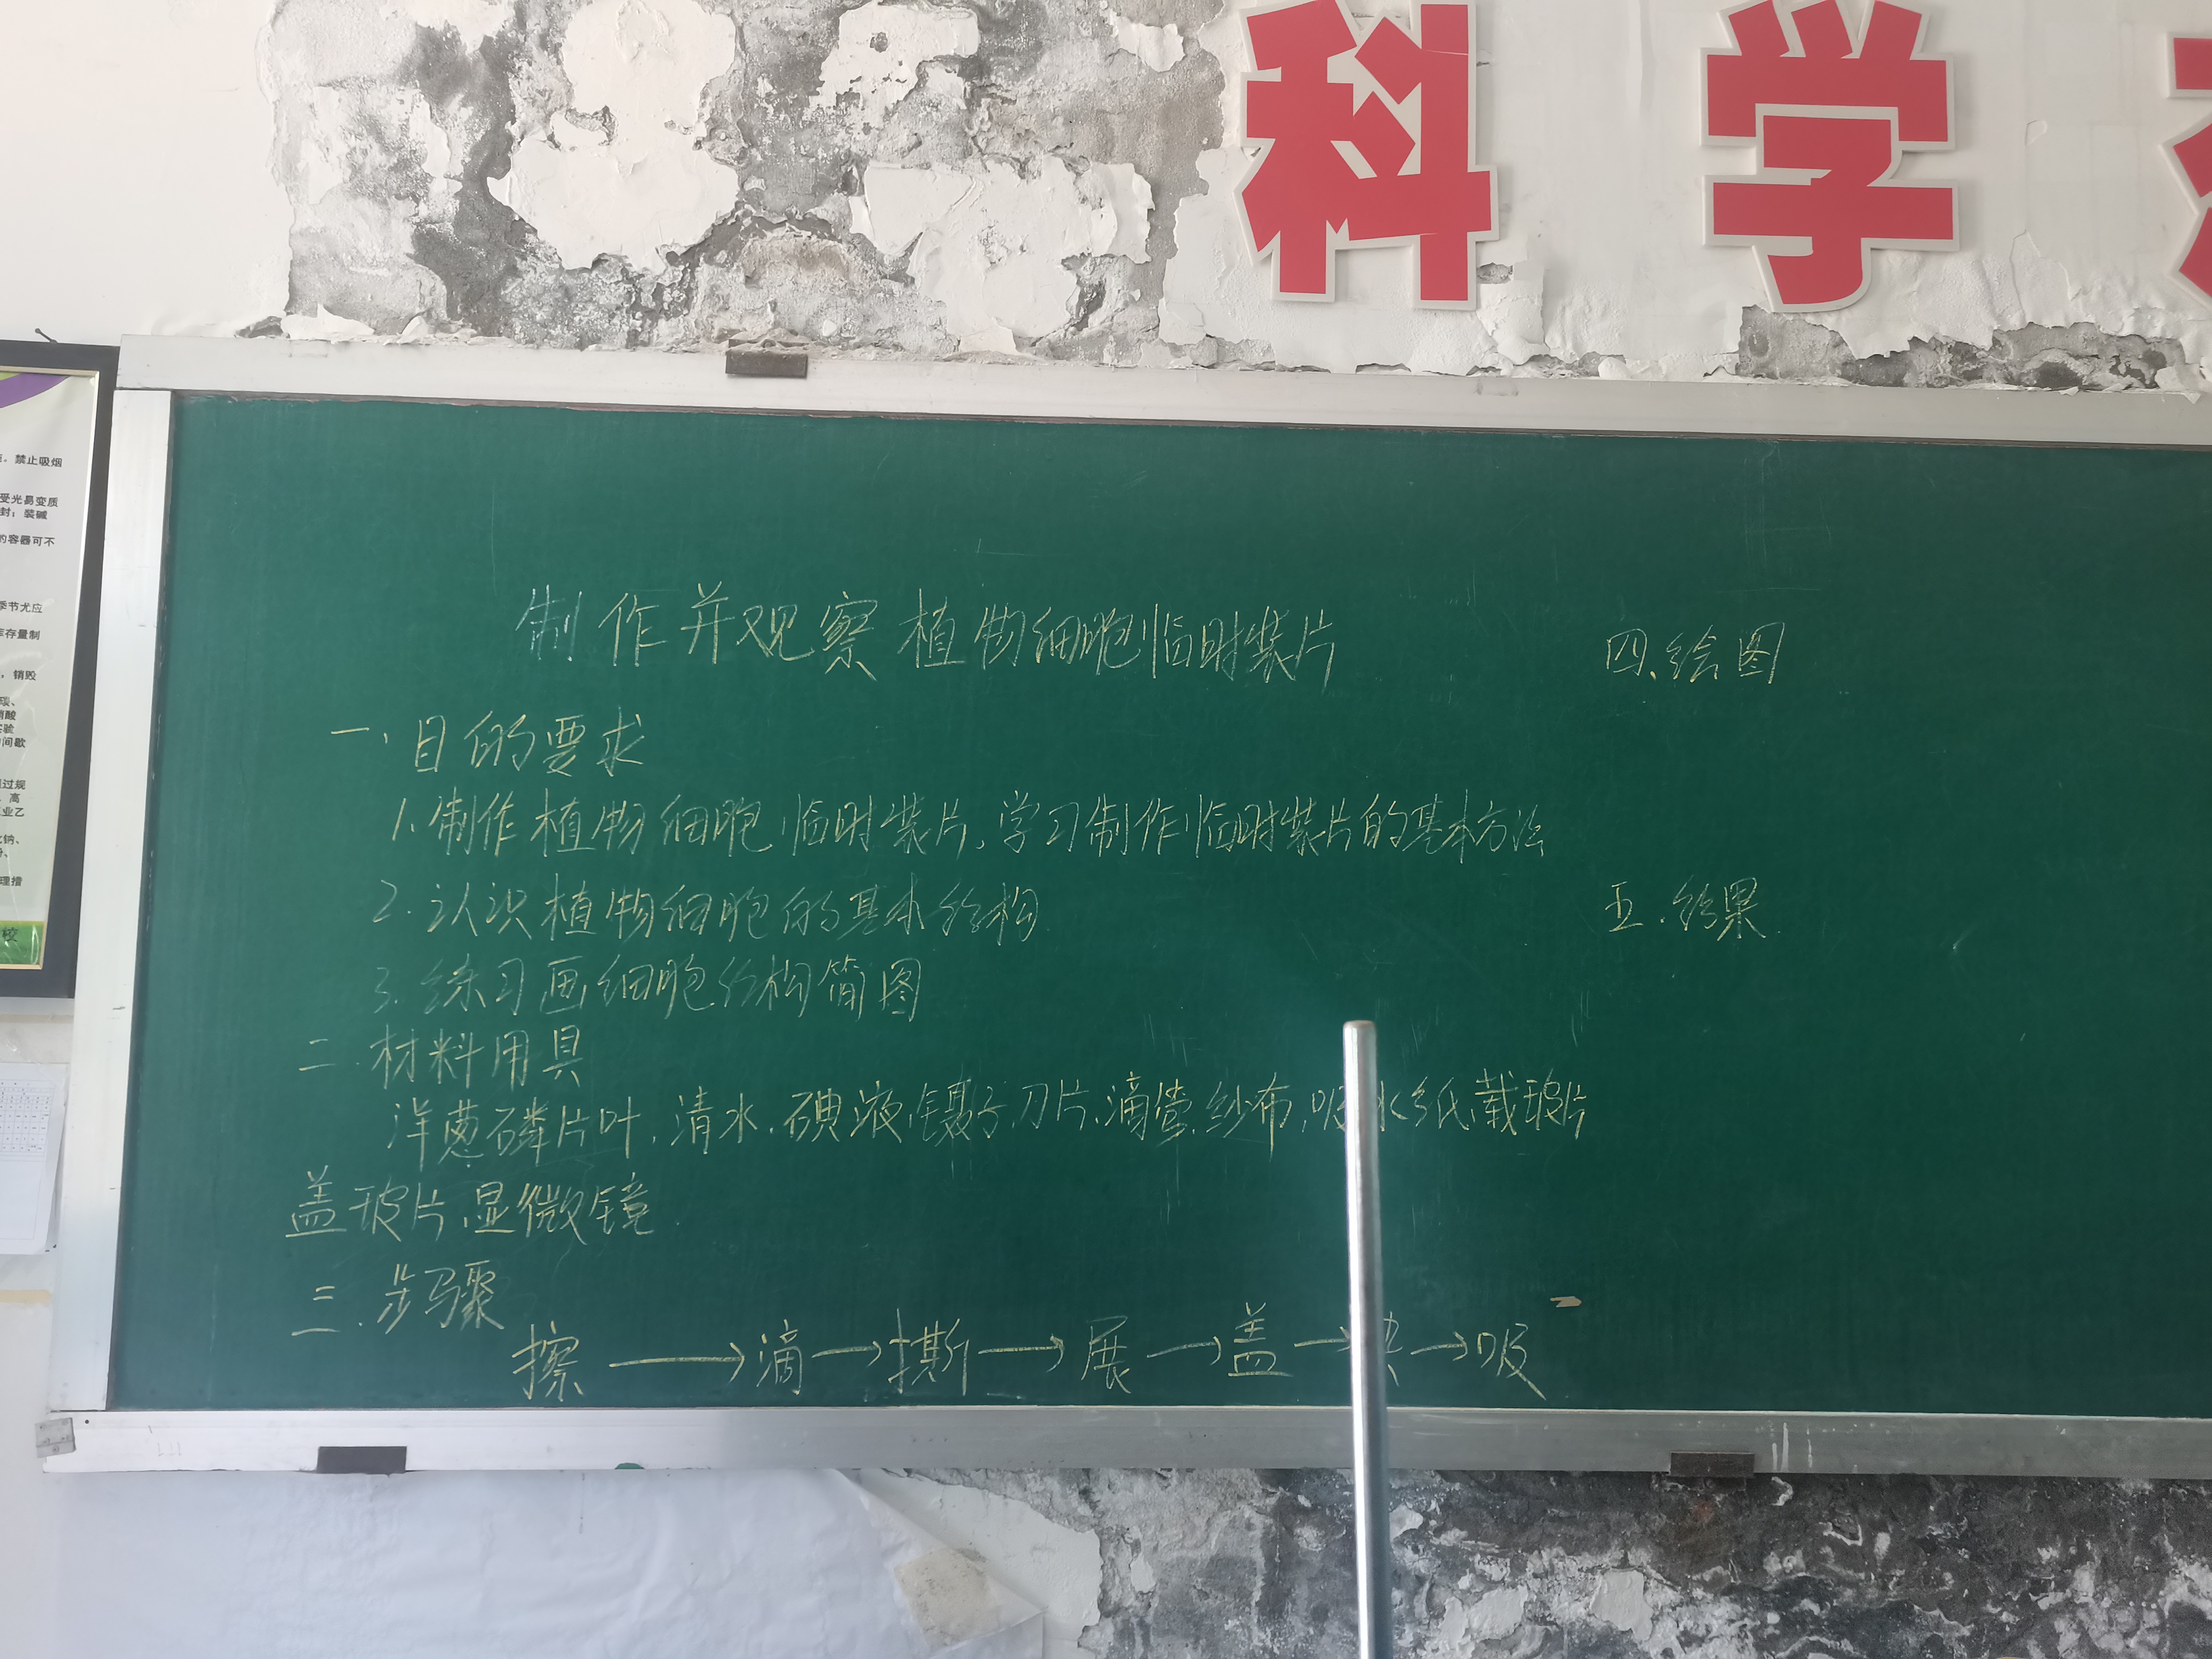 科学
制作并观察植物细胞临时装片
一、目的要求
1.制作植物细胞临时装片,学习制作临时装片的基本方法
2.认识植物细胞的基本结构
3.练习画细胞结构简图
二.材料用具
洋葱磷片叶、清水、碘液、镊子、刀片、滴管、纱布、吸水纸、载玻片
盖玻片、显微镜
三.步骤
擦→滴→撕→展→盖→→吸
四、绘图
五.结果
。禁止吸烟
受光易变质
封；装碱
的容器可不
季节尤应
库存量制
，销毁
硝酸
实验
间歇
过规
高
业乙
钠、
理措
校